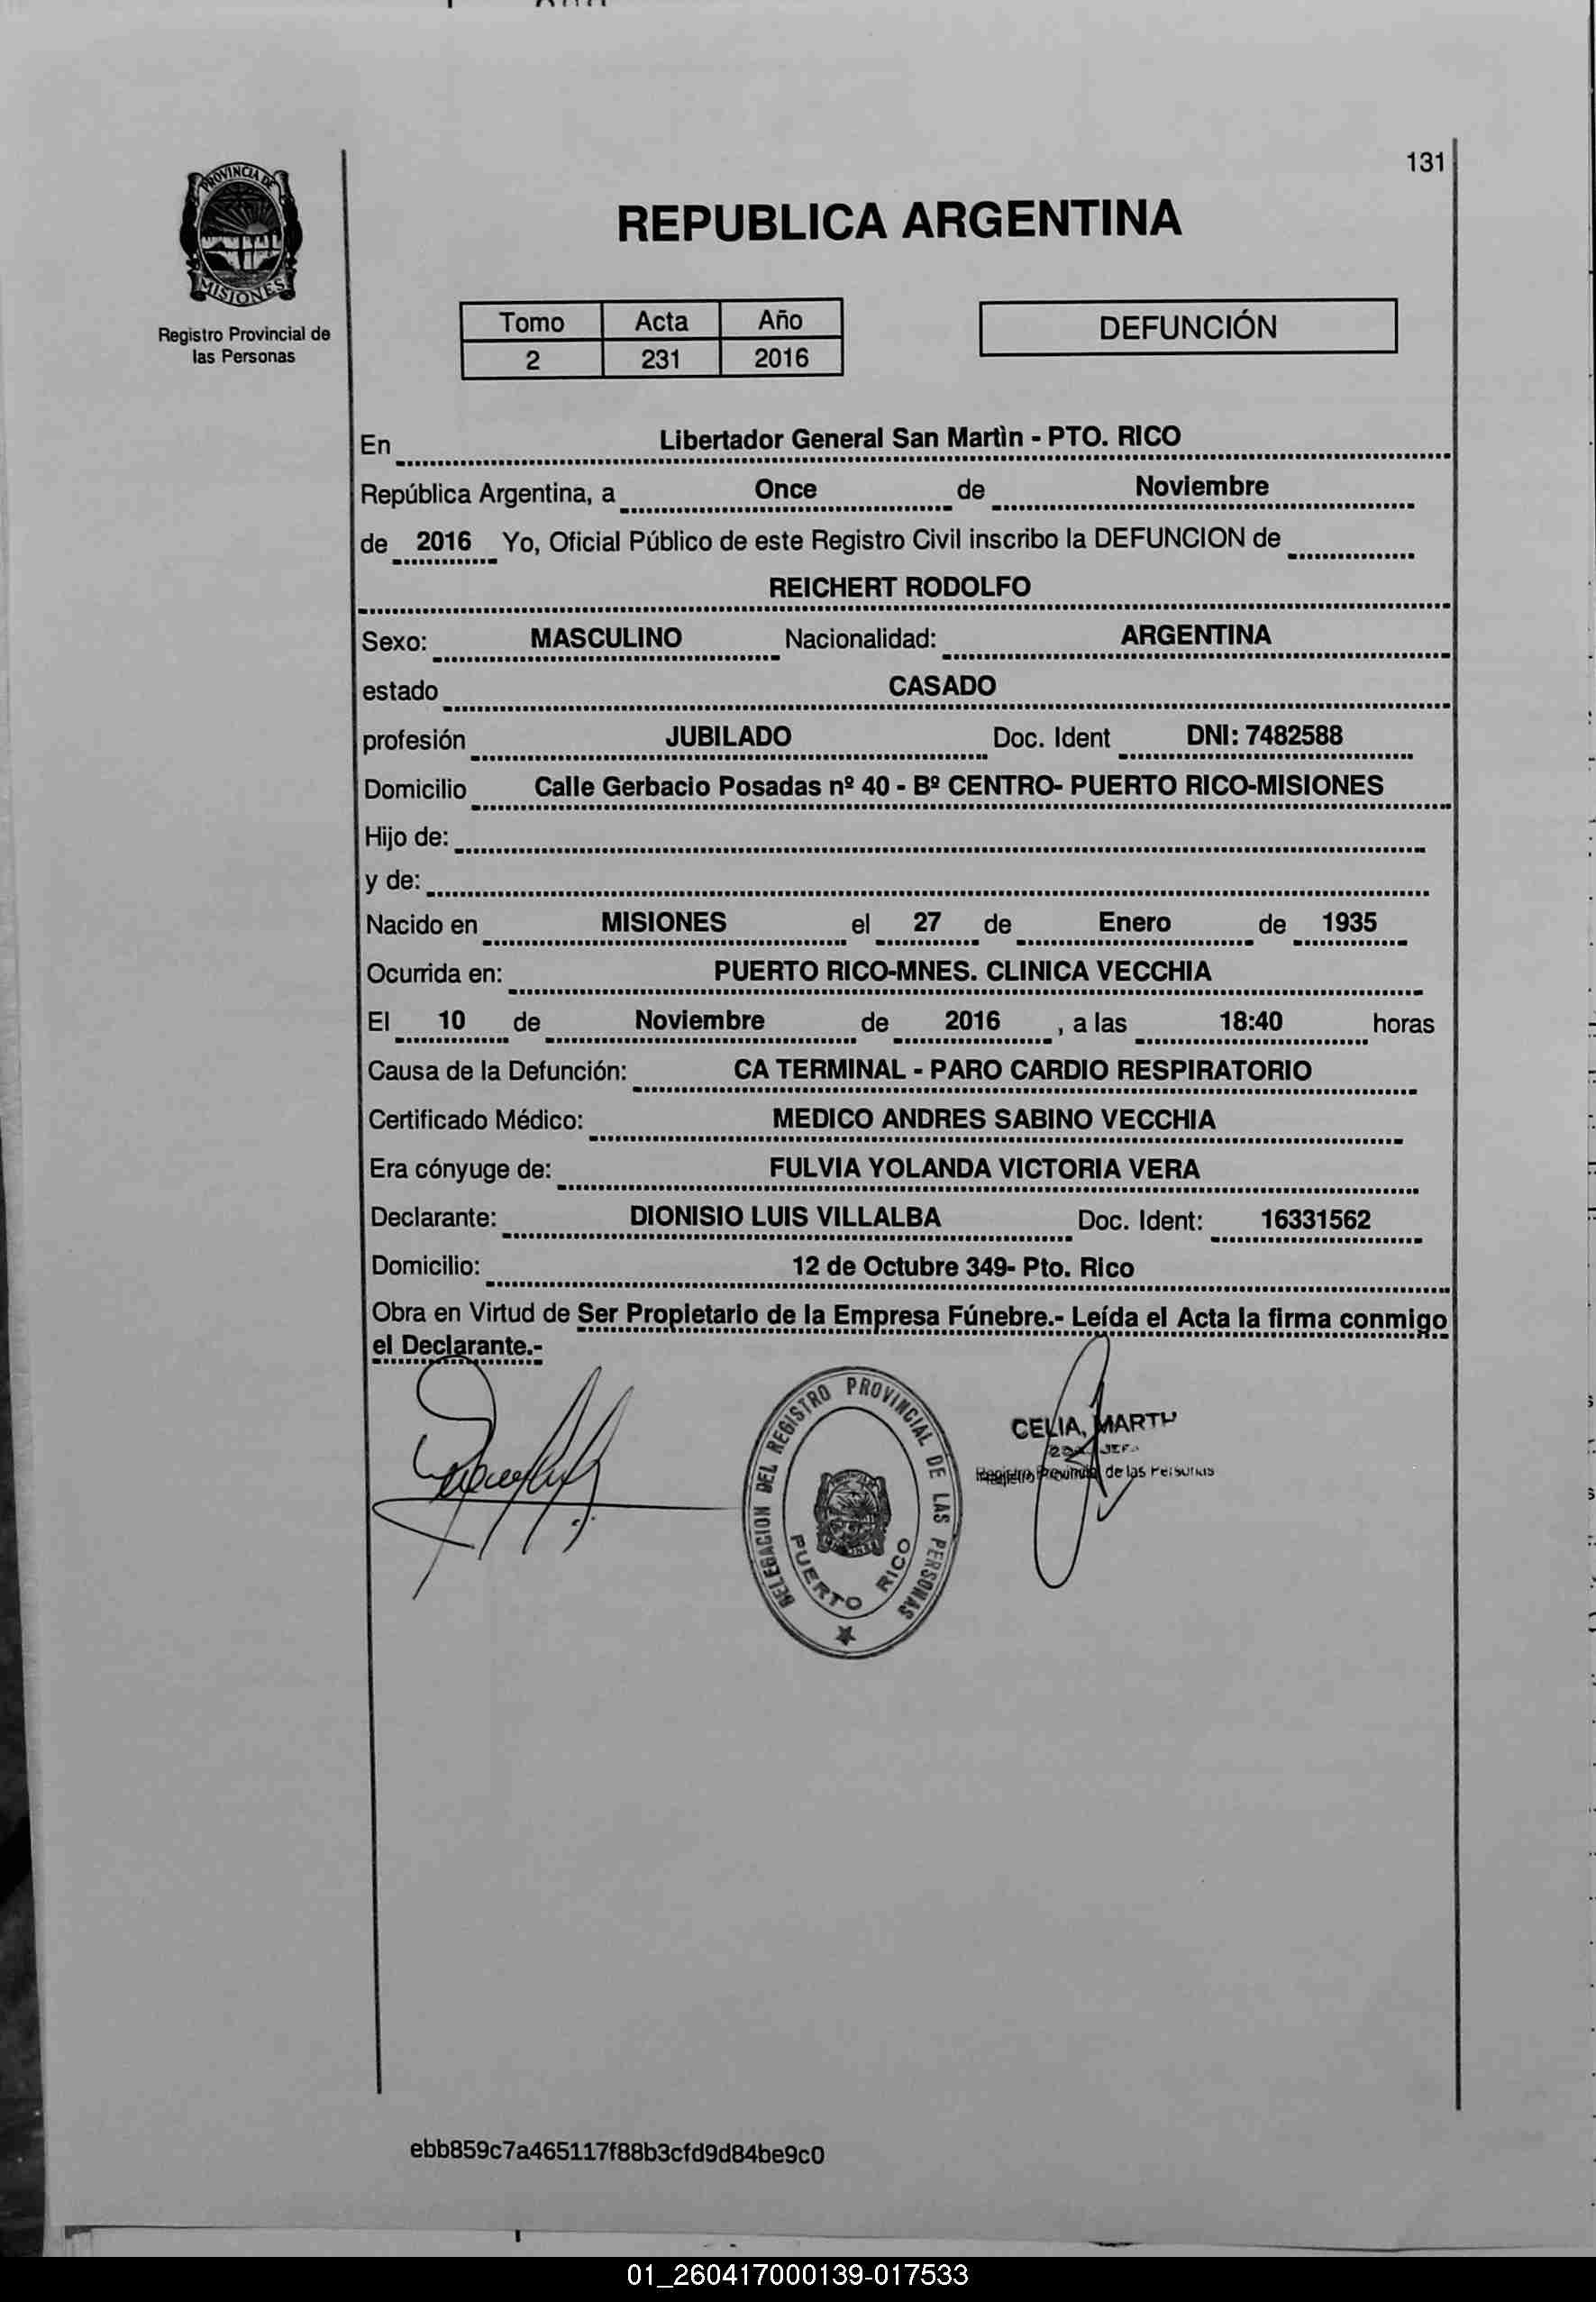 131
PROVINCIA DE
MISIONES
Registro Provincial de
las Personas
REPUBLICA ARGENTINA
Tomo Acta Año
2 231 2016
DEFUNCIÓN
En Libertador General San Martìn - PTO. RICO
República Argentina, a Once de Noviembre
de 2016 Yo, Oficial Público de este Registro Civil inscribo la DEFUNCION de
REICHERT RODOLFO
Sexo: MASCULINO Nacionalidad: ARGENTINA
estado CASADO
profesión JUBILADO Doc. Ident DNI: 7482588
Domicilio Calle Gerbacio Posadas nº 40 - Bº CENTRO- PUERTO RICO-MISIONES
Hijo de:
y de:
Nacido en MISIONES el 27 de Enero de 1935
Ocurrida en: PUERTO RICO-MNES. CLINICA VECCHIA
El 10 de Noviembre de 2016 , a las 18:40 horas
Causa de la Defunción: CA TERMINAL - PARO CARDIO RESPIRATORIO
Certificado Médico: MEDICO ANDRES SABINO VECCHIA
Era cónyuge de: FULVIA YOLANDA VICTORIA VERA
Declarante: DIONISIO LUIS VILLALBA Doc. Ident: 16331562
Domicilio: 12 de Octubre 349- Pto. Rico
Obra en Virtud de Ser Propietario de la Empresa Fúnebre.- Leída el Acta la firma conmigo
el Declarante.-
DELEGACION DEL REGISTRO PROVINCIAL DE LAS PERSONAS
PUERTO RICO
CELIA, MARTH
Registro Provincial de las Personas
ebb859c7a465117f88b3cfd9d84be9c0
01_260417000139-017533